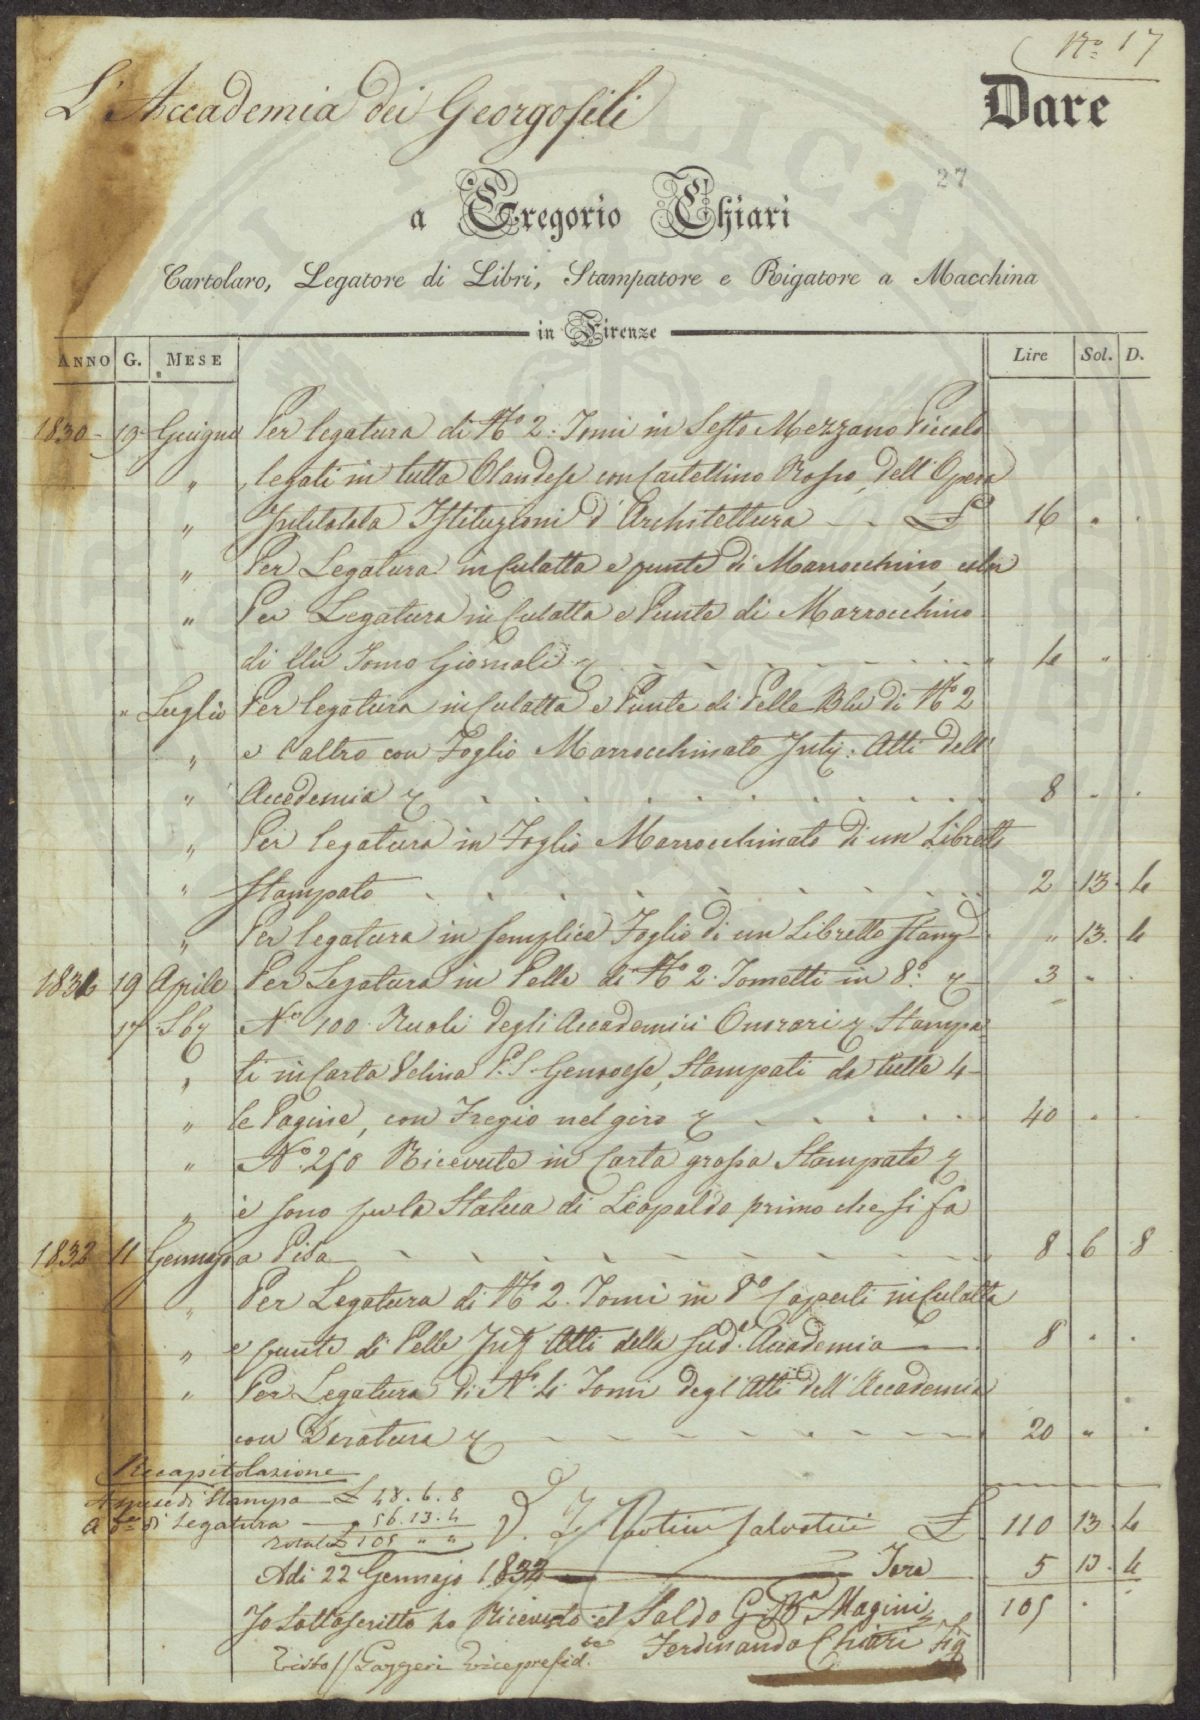 No. 17
L'Accademia dei Georgofili
Dare
27
a Gregorio Chiari
Cartolaro, Legatore di Libri, Stampatore e Rigatore a Macchina
in Firenze
ANNO G. MESE Lire Sol. D.
1830 19 Giugno Per legatura di No 2. Tomi in Sesto Mezzano Piccolo
" legati in tutta Olandese con Cartellino Rosso, dell'Opera
" Intitolata Istituzioni d'Architettura £ 16 " "
" Per Legatura in Culatta e punte di Marrocchino
" Per Legatura in Culatta e Punte di Marrocchino
di Un Tomo Giornali 4 " "
" Luglio Per legatura in Culatta e Punte di Pelle Blu di No 2
" e l'altro con Foglio Marrocchinato Inty: Atti dell'
" Accademia 8 " "
" Per legatura in Foglio Marrocchinato di un Libretto
" Stampato 2 13 4
" Per legatura in semplice Foglio di un Libretto Stamp " 13. 4
1831 19 Aprile Per Legatura in Pelle di No 2. Tometti in 8.o 3 " "
17 No 100 Ruoli degli Accademici Onorari Stampa
" ti in Carta Velina Genovese, Stampati da tutte 4
" le Pagine, con Fregio nel giro 40 " "
" No. 250 Ricevute in Carta grossa Stampate
" e sono per la Statua di Leopoldo primo che si fa
1832 11 Gennajo a Pisa 8 6 8
" Per Legatura di No 2. Tomi in 8o Coperti in Culatta
" e punte di Pelle Int Atti della Sud.a Accademia 8 " "
" Per Legatura di No 4 Tomi degl'Atti dell'Accademia
con Doratura 20 " "
Recapitolazione
A spese di Stampa £ 48. 6. 8
A do di Legatura " 56. 13. 4
Totale £ 105 " "
£ 110 13 4
Adi 22 Gennajo 1832 Tara 5 13. 4
Io Sottoscritto ho Ricevuto il Saldo G. Ba Magini 105 " "
Ferdinando Chiari
Visto // Gazzeri Vicepresid.te